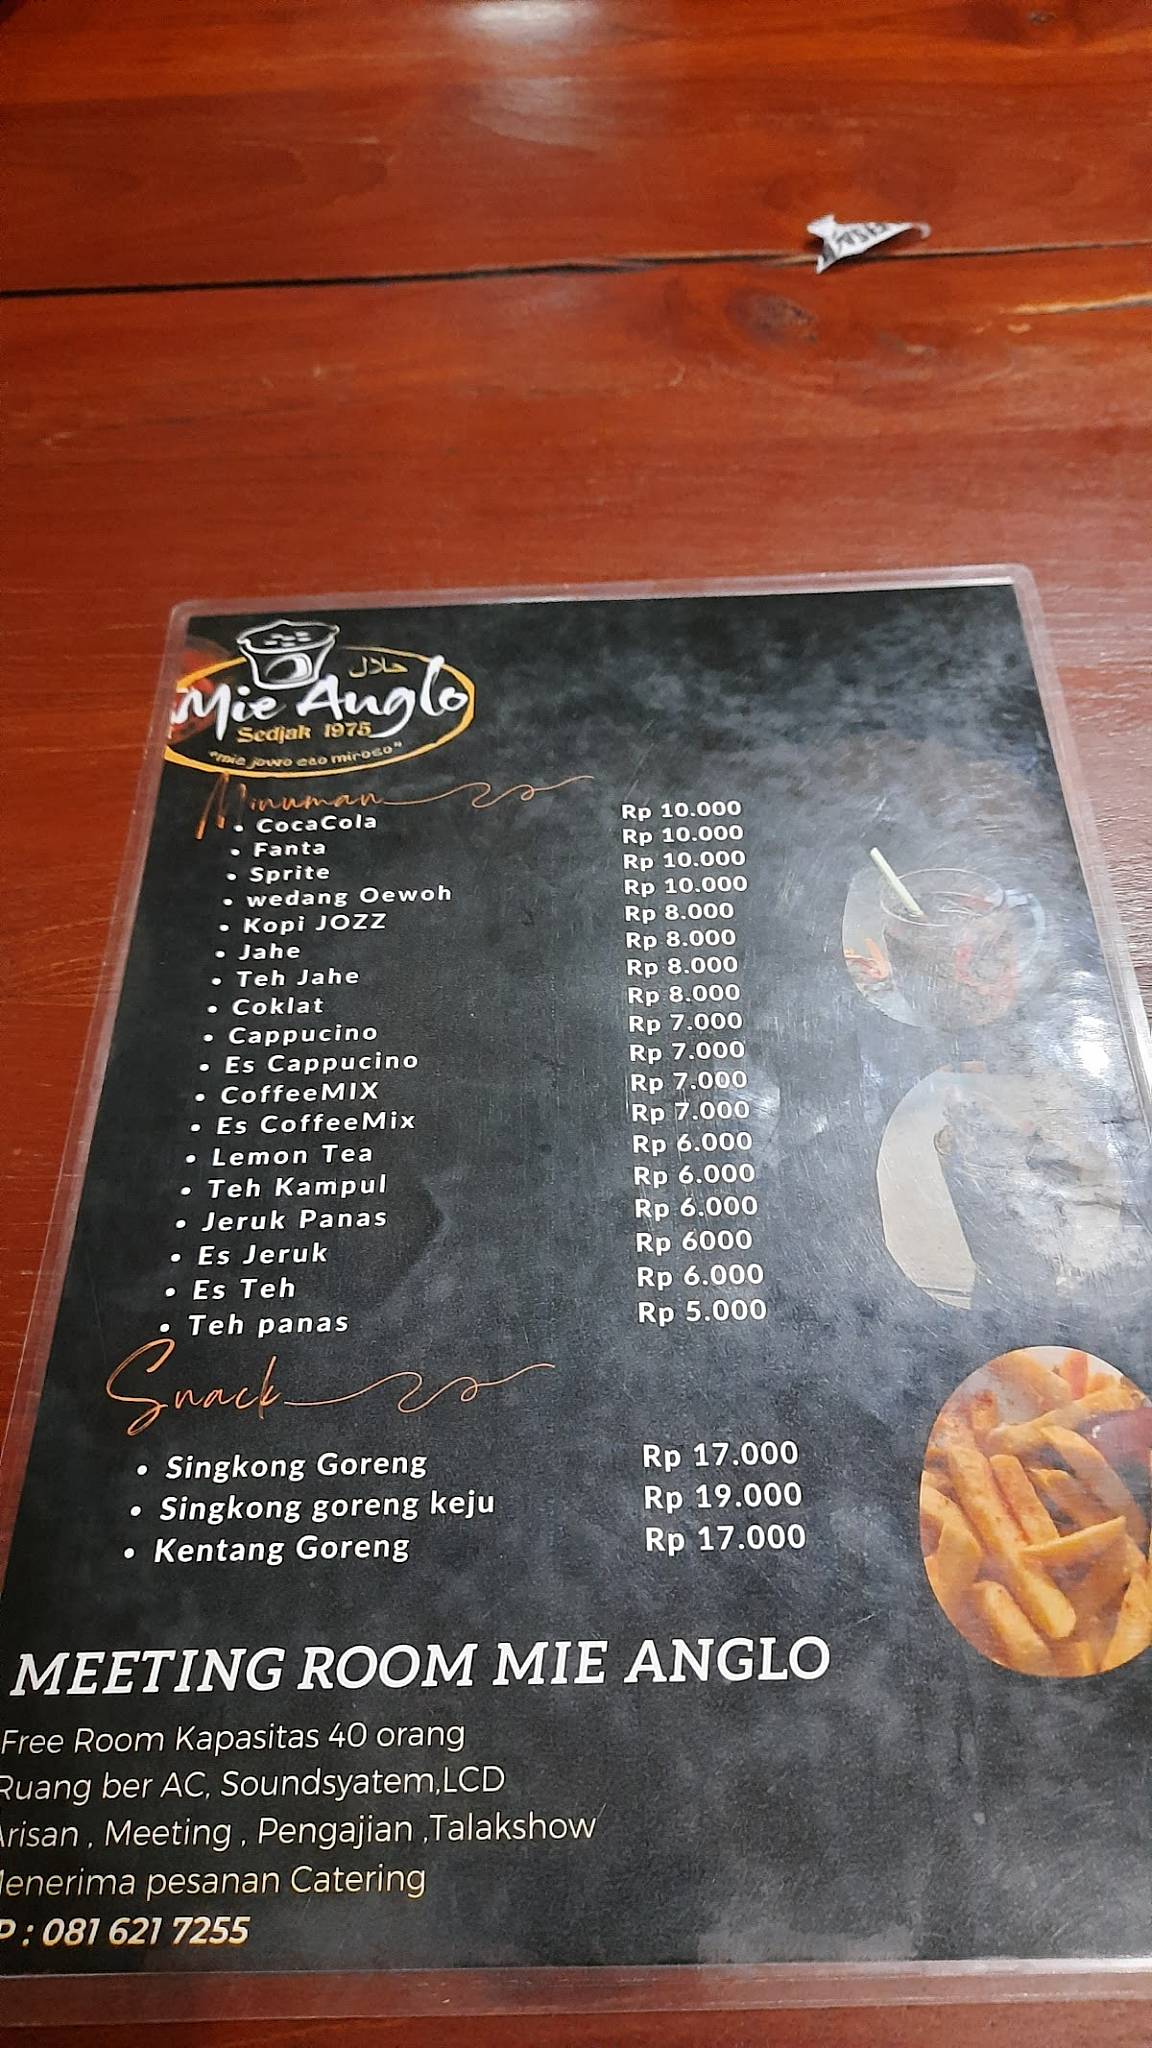 حلال
Mie Anglo
Sedjak 1975
"mie jowo cao miroso"
Minuman
• CocaCola Rp 10.000
• Fanta Rp 10.000
• Sprite Rp 10.000
• wedang Oewoh Rp 10.000
• Kopi JOZZ Rp 8.000
• Jahe Rp 8.000
• Teh Jahe Rp 8.000
• Coklat Rp 8.000
• Cappucino Rp 7.000
• Es Cappucino Rp 7.000
• CoffeeMIX Rp 7.000
• Es CoffeeMix Rp 7.000
• Lemon Tea Rp 6.000
• Teh Kampul Rp 6.000
• Jeruk Panas Rp 6.000
• Es Jeruk Rp 6000
• Es Teh Rp 6.000
• Teh panas Rp 5.000
Snack
• Singkong Goreng Rp 17.000
• Singkong goreng keju Rp 19.000
• Kentang Goreng Rp 17.000
MEETING ROOM MIE ANGLO
Free Room Kapasitas 40 orang
Ruang ber AC, Soundsyatem,LCD
Arisan , Meeting , Pengajian ,Talakshow
Menerima pesanan Catering
P : 081 621 7255